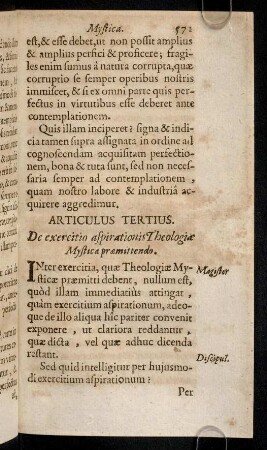 Mystica. 571
est, & esse debet, ut non possit amplius
& amplius perfici & proficere; fragi-
les enim sumus à natura corrupta, quæ
corruptio se semper operibus nostris
immiscet, & si ex omni parte quis per-
fectus in virtutibus esse deberet ante
contemplationem.
Quis illam inciperet? signa & indi-
cia tamen supra assignata in ordine ad
cognoscendam acquisitam perfectio-
nem, bona & tuta sunt, sed non neces-
saria semper ad contemplationem,
quam nostro labore & industriâ ac-
quirere aggredimur.
ARTICULUS TERTIUS.
De exercitio aspirationis Theologiæ
Mystica præmittendo.
INter exercitia, quæ Theologiæ My- Magister
sticæ præmitti debent, nullum est,
quòd illam immediatiùs attingat,
quàm exercitium aspirationum, adeo-
que de illo aliqua hîc pariter convenit
exponere, ut clariora reddantur,
quæ dicta, vel quæ adhuc dicenda
restant. Discipul.
Sed quid intelligitur per hujusmo-
di exercitium aspirationum?
Per